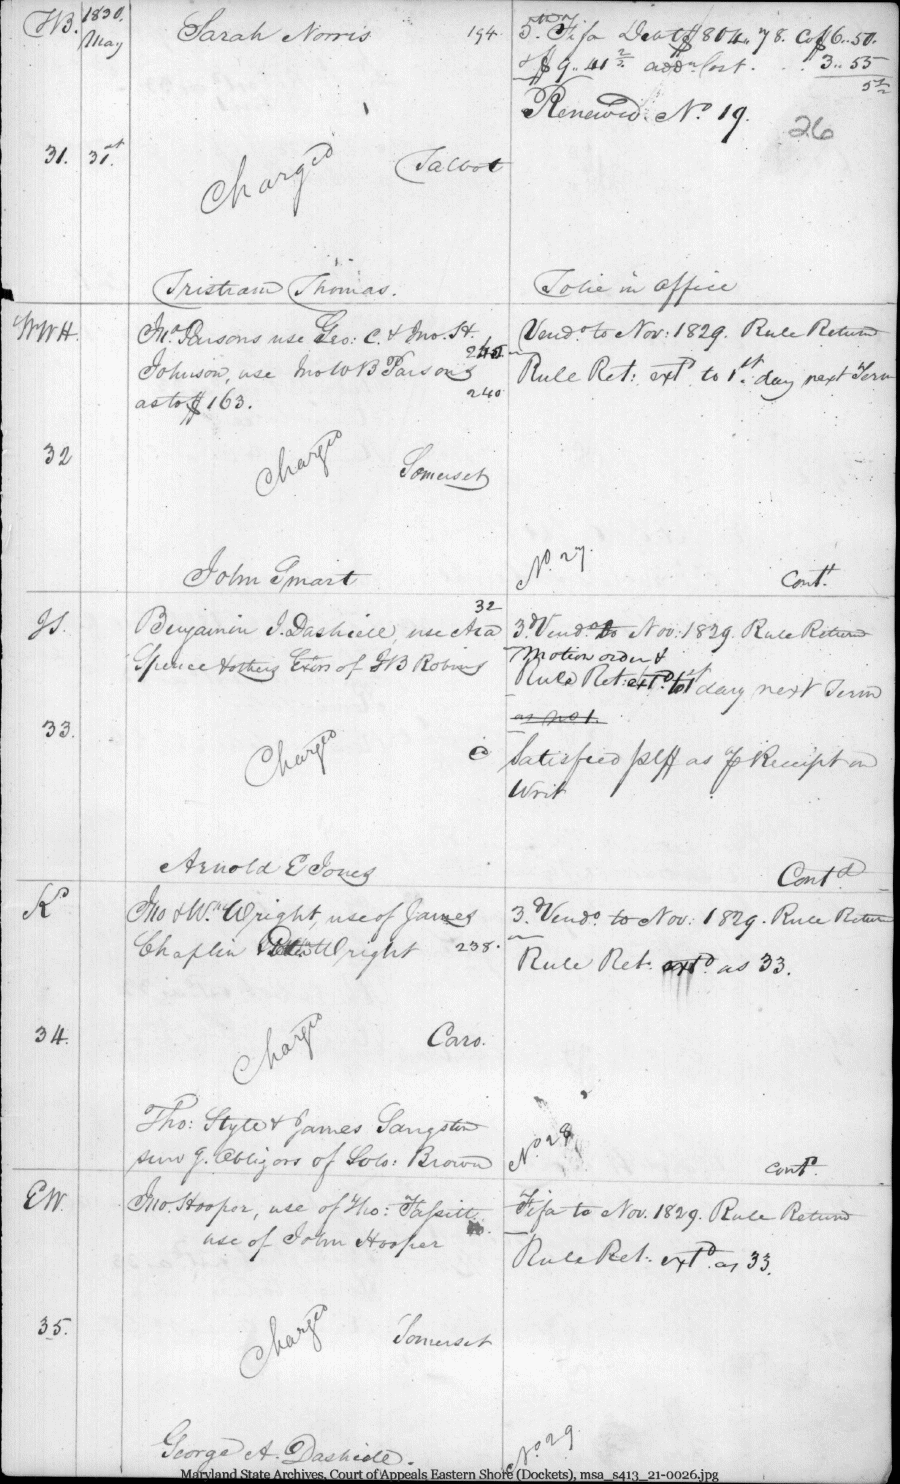 1830. May
Sarah Norris 194
5. Fifa Debt $804..78. Cost $6..50.
& $9..41 2/2 addl Cost. 3..55
Renewed. No. 19.
26
31. 31st
Charged
Talbot
Tristram Thomas.
To lie in office
WWH.
Jno. Parsons use Geo: C. & Jno. H.
Johnson, use Jno W B Parsons
as to $163. 240
Vendo. to Nov: 1829. Rule Return
Rule Ret: extd. to 1st. day next Term
32
Charged
Somerset
John Smart
No. 27.
Contd.
JS.
32
Benjamin I. Dashiell, use Asa
Spence & others Exrs of JB Robins
3d. Vendo. to Nov: 1829. Rule Return
Motion order &
Rule Ret: extd. to 1st day next Term
as no 1.
33.
Charged
Satisfied plff as pr Receipt on
Writ
Arnold E Jones
Contd
K
Jno & Wm. Wright, use of James
Chaplin Wright 238.
3d. Vendo. to Nov: 1829. Rule Return
Rule Ret. extd. as 33.
34.
Charged
Caro.
Tho: Style & James Sangston
surv g. obligors of Solo: Brown
No. 28
contd.
EW.
Jno. Hooper, use of Tho: Fassitt
use of John Hooper
Fifa to Nov. 1829. Rule Return
Rule Ret. extd. as 33.
35.
Charged
Somerset
George A. Dashiell.
No. 29
Maryland State Archives, Court of Appeals Eastern Shore (Dockets), msa_s413_21-0026.jpg